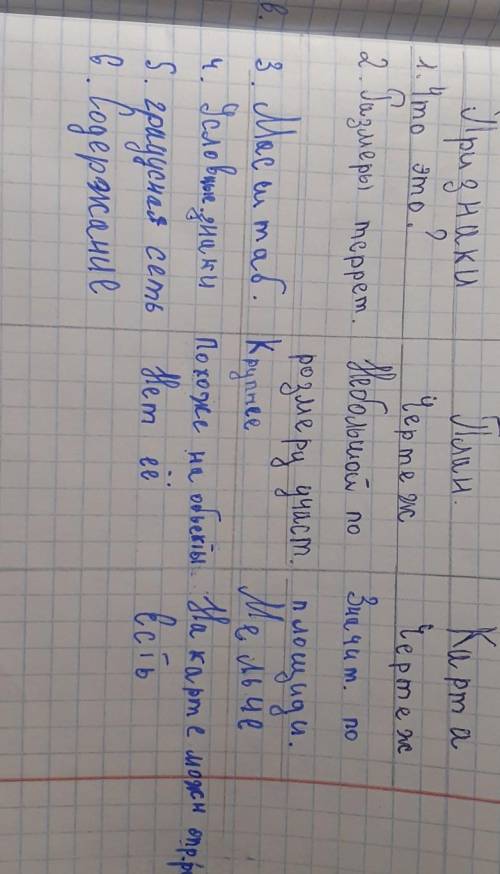 в.
Признаки План. Карта
1. Что это? Чертеж Чертеж
2. Размеры террет. Небольшой по Значит. по
розмеру участ. площиди.
3. Масштаб. Крупнее Мельче
4. Условные знаки Похоже на объекты. На карте можн опр.
5. градусная сеть Нет её Есть
6. Содержание